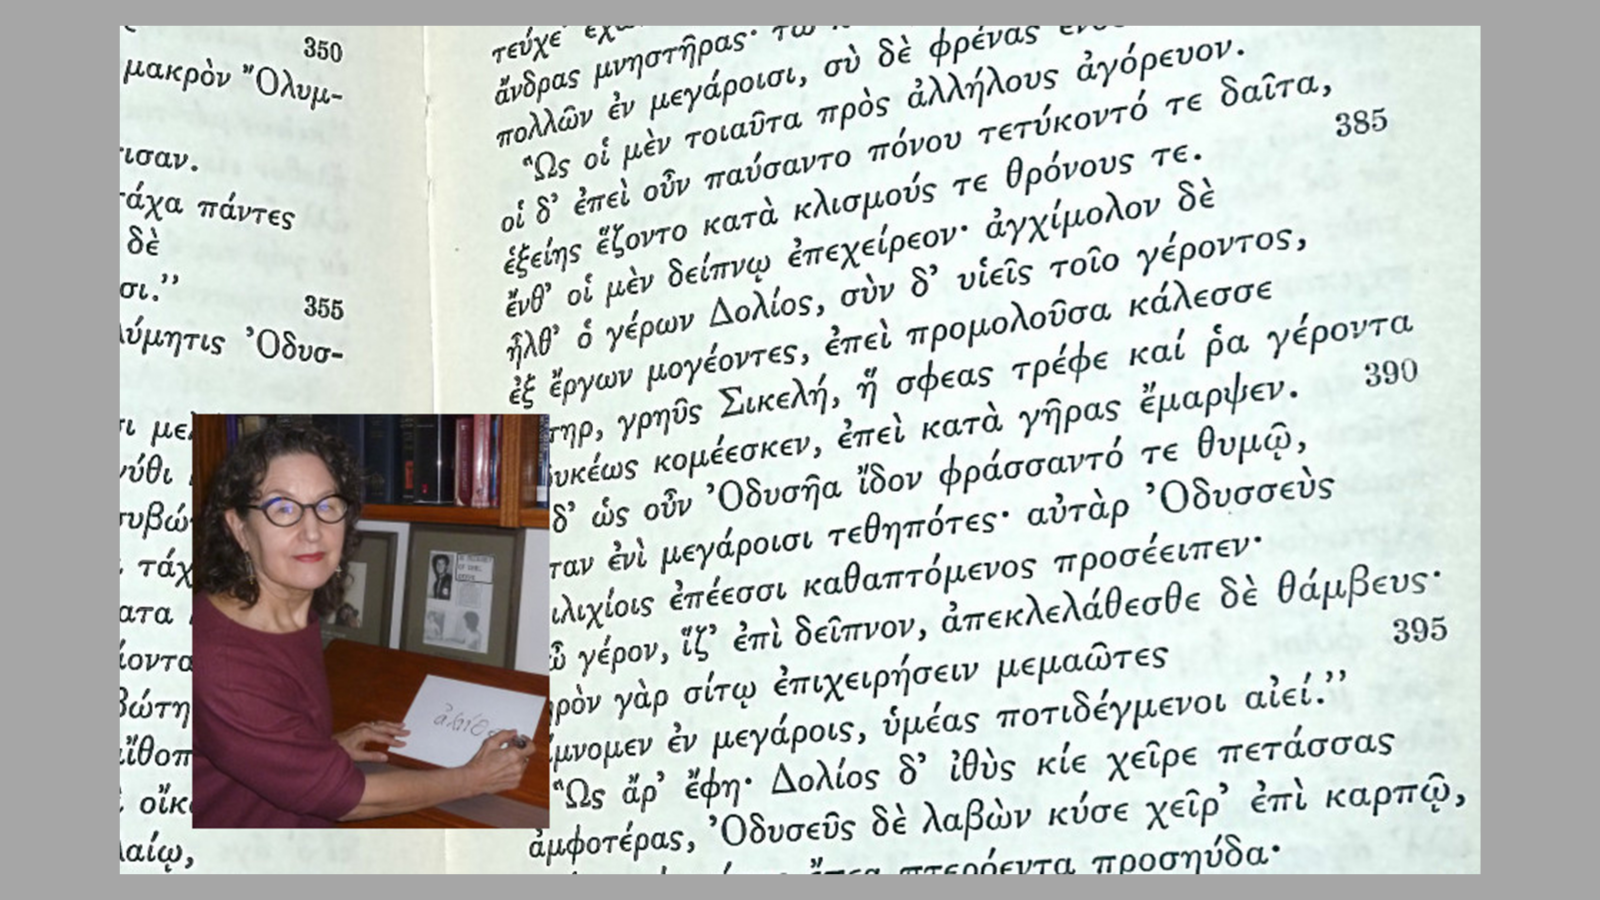 350
μακρὸν Ὄλυμ-
ισαν.
άχα πάντες
δὲ
σι.”
355
λύμητις Ὀδυσ-
ι
νύθι
συβώ
τάχ
ατα
ίοντα
βώτη
αἴθοπ
οἴκ
λαίῳ,
τεύχε’
ἄνδρας μνηστῆρας· σὺ δὲ φρένας
πολλῶν ἐν μεγάροισι, ἀγόρευον.
Ὣς οἱ μὲν τοιαῦτα πρὸς ἀλλήλους
οἱ δ’ ἐπεὶ οὖν παύσαντο πόνου τετύκοντό τε δαῖτα,
385
ἑξείης ἕζοντο κατὰ κλισμούς τε θρόνους τε.
ἔνθ’ οἱ μὲν δείπνῳ ἐπεχείρεον· ἀγχίμολον δὲ
ἦλθ’ ὁ γέρων Δολίος, σὺν δ’ υἱεῖς τοῖο γέροντος,
ἐξ ἔργων μογέοντες, ἐπεὶ προμολοῦσα κάλεσσε
τηρ, γρηῦς Σικελή, ἥ σφεας τρέφε καί ῥα γέροντα
390
υκέως κομέεσκεν, ἐπεὶ κατὰ γῆρας ἔμαρψεν.
δ’ ὡς οὖν Ὀδυσῆα ἴδον φράσσαντό τε θυμῷ,
ταν ἐνὶ μεγάροισι τεθηπότες· αὐτὰρ Ὀδυσσεὺς
ιλιχίοις ἐπέεσσι καθαπτόμενος προσέειπεν·
ὦ γέρον, ἵζ’ ἐπὶ δεῖπνον, ἀπεκλελάθεσθε δὲ θάμβευς·
395
ρὸν γὰρ σίτῳ ἐπιχειρήσειν μεμαῶτες
μνομεν ἐν μεγάροις, ὑμέας ποτιδέγμενοι αἰεί.”
Ὣς ἄρ’ ἔφη· Δολίος δ’ ἰθὺς κίε χεῖρε πετάσσας
ἀμφοτέρας, Ὀδυσεῦς δὲ λαβὼν κύσε χεῖρ’ ἐπὶ καρπῷ,
ἔπεα πτερόεντα προσηύδα·